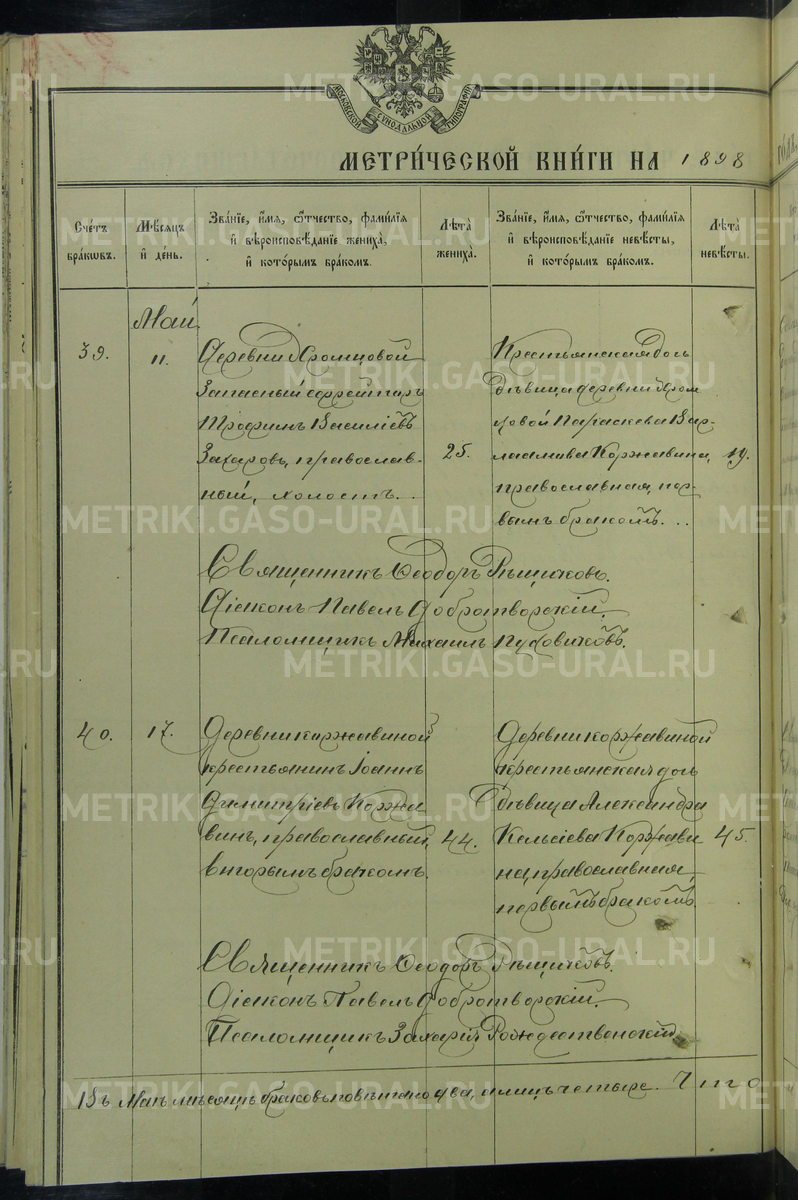 МОСКОВСКОЙ СѴНОДАЛЬНОЙ ТИПОГРАФІИ
МЕТРИ́ЧЕСКОЙ КНИ́ГИ НА 1898
Сче́тъ бра́кѡвъ.
Мѣ́сѧцъ и҆ де́нь.
Зва́нїе, и҆́мѧ, ѻ҆́тчество, фами́лїѧ
и҆ вѣроисповѣ́данїе жениха̀,
и҆ кото́рымъ бра́комъ.
Лѣ́та жениха̀.
Зва́нїе, и҆́мѧ, ѻ҆́тчество, фами́лїѧ
и҆ вѣроисповѣ́данїе невѣ́сты,
и҆ кото́рымъ бра́комъ.
Лѣ́та невѣ́сты.
Май
39.
11.
Деревни Хромцовой
Запасный ефрейторъ
Трофимъ Василіевъ
Захаровъ, православ-
ный, холостъ.
25.
Крестьянская дочь
дѣвица деревни Хром
цовой Параскева Вар-
лаамива Коржавина,
православная, пер-
вымъ бракомъ.
19.
Священникъ Ѳеодоръ Рѣщиковъ.
Діаконъ Павелъ Добротворскій.
Псаломщикъ Михаилъ Пуховиковъ.
40.
17.
Деревни Каржавиной
крестьянинъ Іоаннъ
Димитріевъ Коржа
винъ, православный,
вторымъ бракомъ.
44.
Деревни Коржавиной
крестьянская дочь
дѣвица Александра
Кельсіева Коржави
на, православная,
первымъ бракомъ.
45.
Священникъ Ѳеодоръ Рѣщиковъ.
Діаконъ Павелъ Добротворскій.
Псаломщикъ Захарій Рождественскій.
Въ Маѣ мѣсяцѣ браковъ повѣнчано два, а лицъ четыре.
METRIKI.GASO-URAL.RU